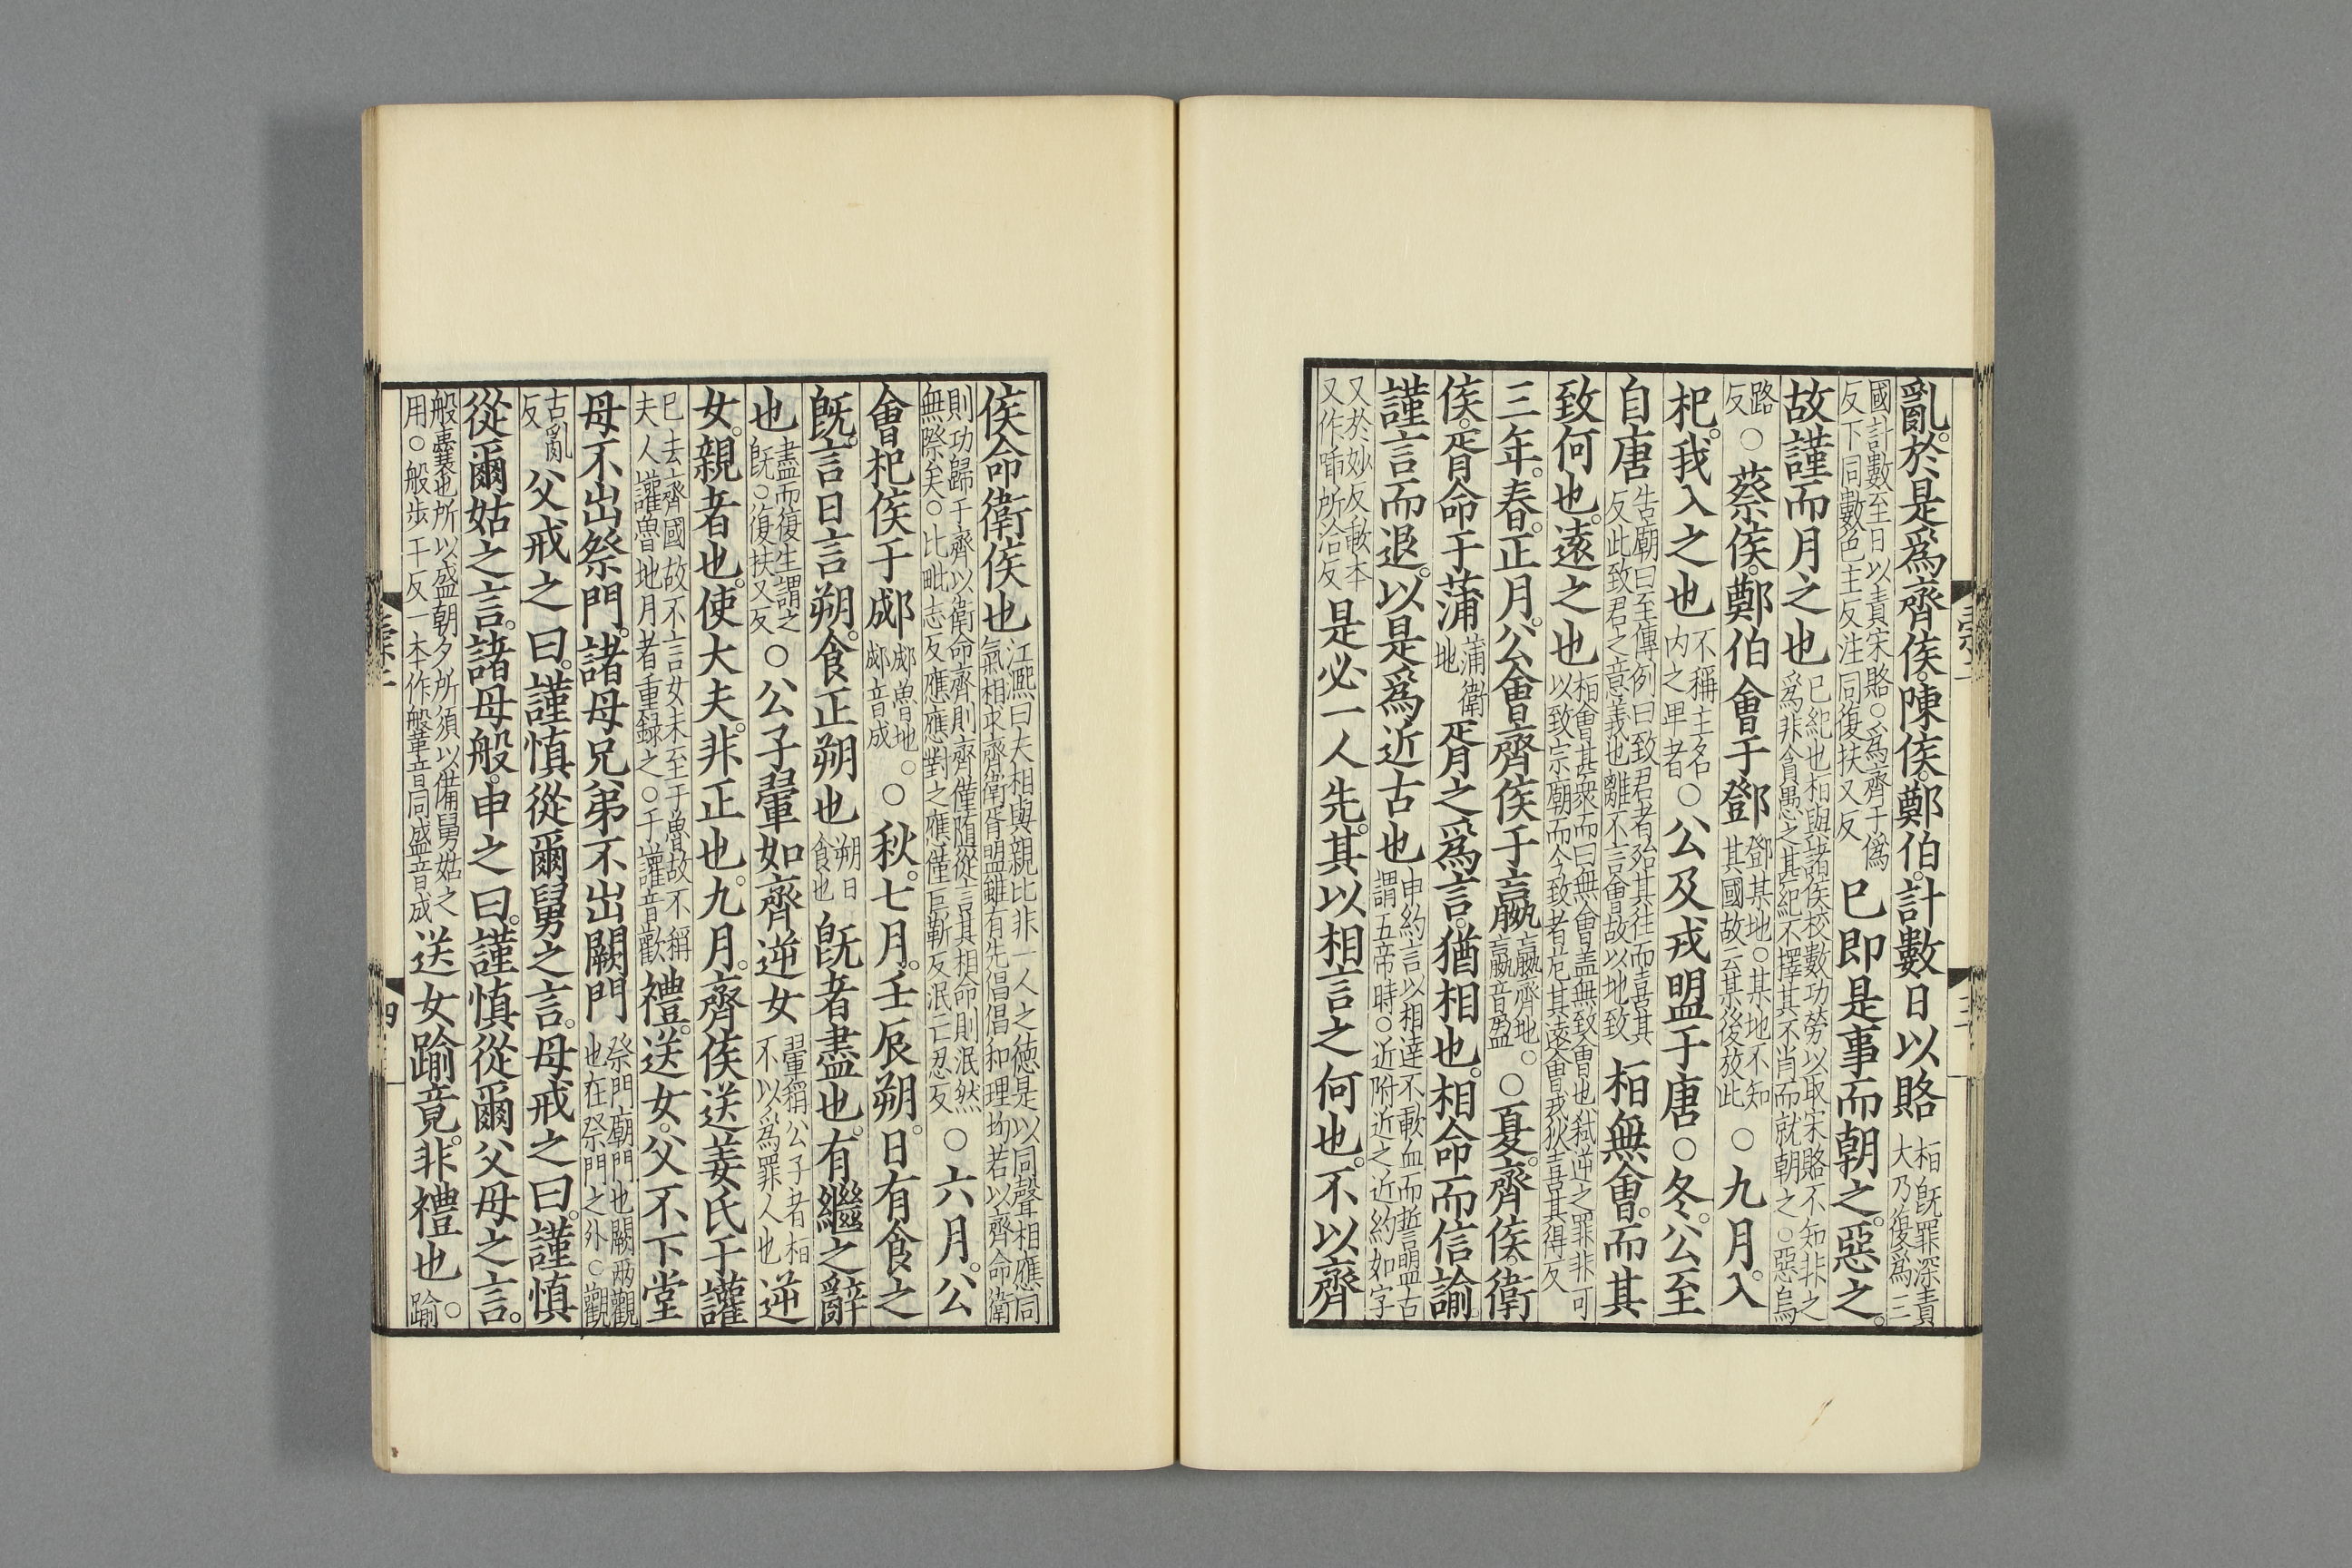 亂。於是爲齊侯。陳侯。鄭伯。計數日以賂桓旣罪深責大乃復爲三
國計數至日以責宋賂○爲齊于僞反下同數色主反注同復扶又反已即是事而朝之。惡之。
故謹而月之也已紀也桓與諸侯校數功勞以取宋賂不知非之爲非貪愚之甚紀不擇其不肖而就朝之○惡烏
路反○蔡侯。鄭伯會于鄧鄧某地○某地不知其國故云某後放此○九月。入
杞。我入之也不稱主名内之卑者○公及戎盟于唐○冬。公至
自唐告廟曰至傳例曰致君者殆其往而喜其反此致君之意義也離不言會故以地致桓無會。而其
致何也。遠之也桓會甚衆而曰無會蓋無致會也弒逆之罪非可以致宗廟而今致者危其遠會戎狄喜其得反
三年。春。正月。公會齊侯于嬴嬴齊地○嬴音盈○夏。齊侯。衛
侯。胥命于蒲蒲衛地胥之爲言。猶相也。相命而信諭。
謹言而退。以是爲近古也申約言以相達不歃血而誓盟古謂五帝時○近附近之近約如字
又於妙反歃本又作唼所洽反是必一人先。其以相言之何也。不以齊
侯命衛侯也江熙曰夫相與親比非一人之徳是以同聲相應同氣相求齊衛胥盟雖有先倡倡和理均若以齊命衛
則功歸于齊以衛命齊則齊僅隨從言其相命則泯然無際矣○比毗志反應應對之應僅巨靳反泯亡忍反○六月。公
會杞侯于郕郕魯地○郕音成○秋。七月。壬辰朔。日有食之
旣。言日言朔。食正朔也朔日食也旣者盡也。有繼之辭
也盡而復生謂之旣○復扶又反○公子翬如齊逆女翬稱公子者桓不以爲罪人也逆
女。親者也。使大夫。非正也。九月。齊侯送姜氏于讙
已去齊國故不言女未至于魯故不稱夫人讙魯地月者重録之○于讙音歡禮。送女。父不下堂
母不出祭門。諸母兄弟不出闕門祭門廟門也闕兩觀也在祭門之外○觀
古亂反父戒之曰。謹慎從爾舅之言。母戒之曰。謹慎
從爾姑之言。諸母般。申之曰。謹慎從爾父母之言。
般囊也所以盛朝夕所須以備舅姑之用○般步干反一本作鞶音同盛音成送女踰竟。非禮也○踰